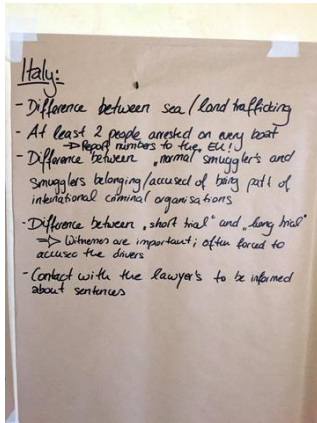 Italy:
- Difference between sea / land trafficking
- At least 2 people arrested on every boat
→ Report numbers to the EU!
- Difference between „normal smugglers and
smugglers belonging/accused of being part of
international criminal organisations
- Difference between „short trial“ and „long trial“
=> Witnesses are important; often forced to
accuse the drivers
- Contact with the lawyer's to be informed
about sentences